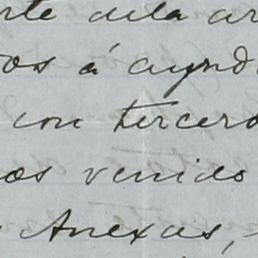 rte dela ar
os á ayud
con tercero
os venido
Anexas,